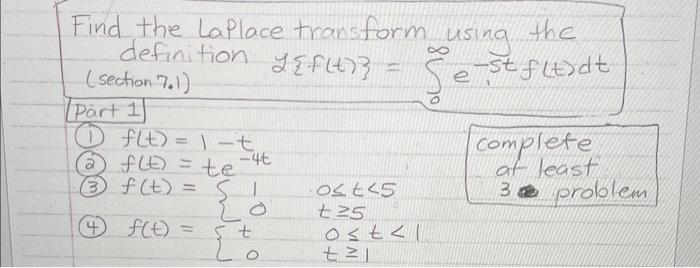 Find the Laplace transform using the
definition ℒ{f(t)} = ∫₀^∞ e^-st f(t)dt
(section 7.1)
Part 1
① f(t) = 1-t
② f(t) = te^-4t
③ f(t) = { 1 0≤t<5
0 t≥5
④ f(t) = { t 0≤t<1
0 t≥1
complete
at least
3 problem